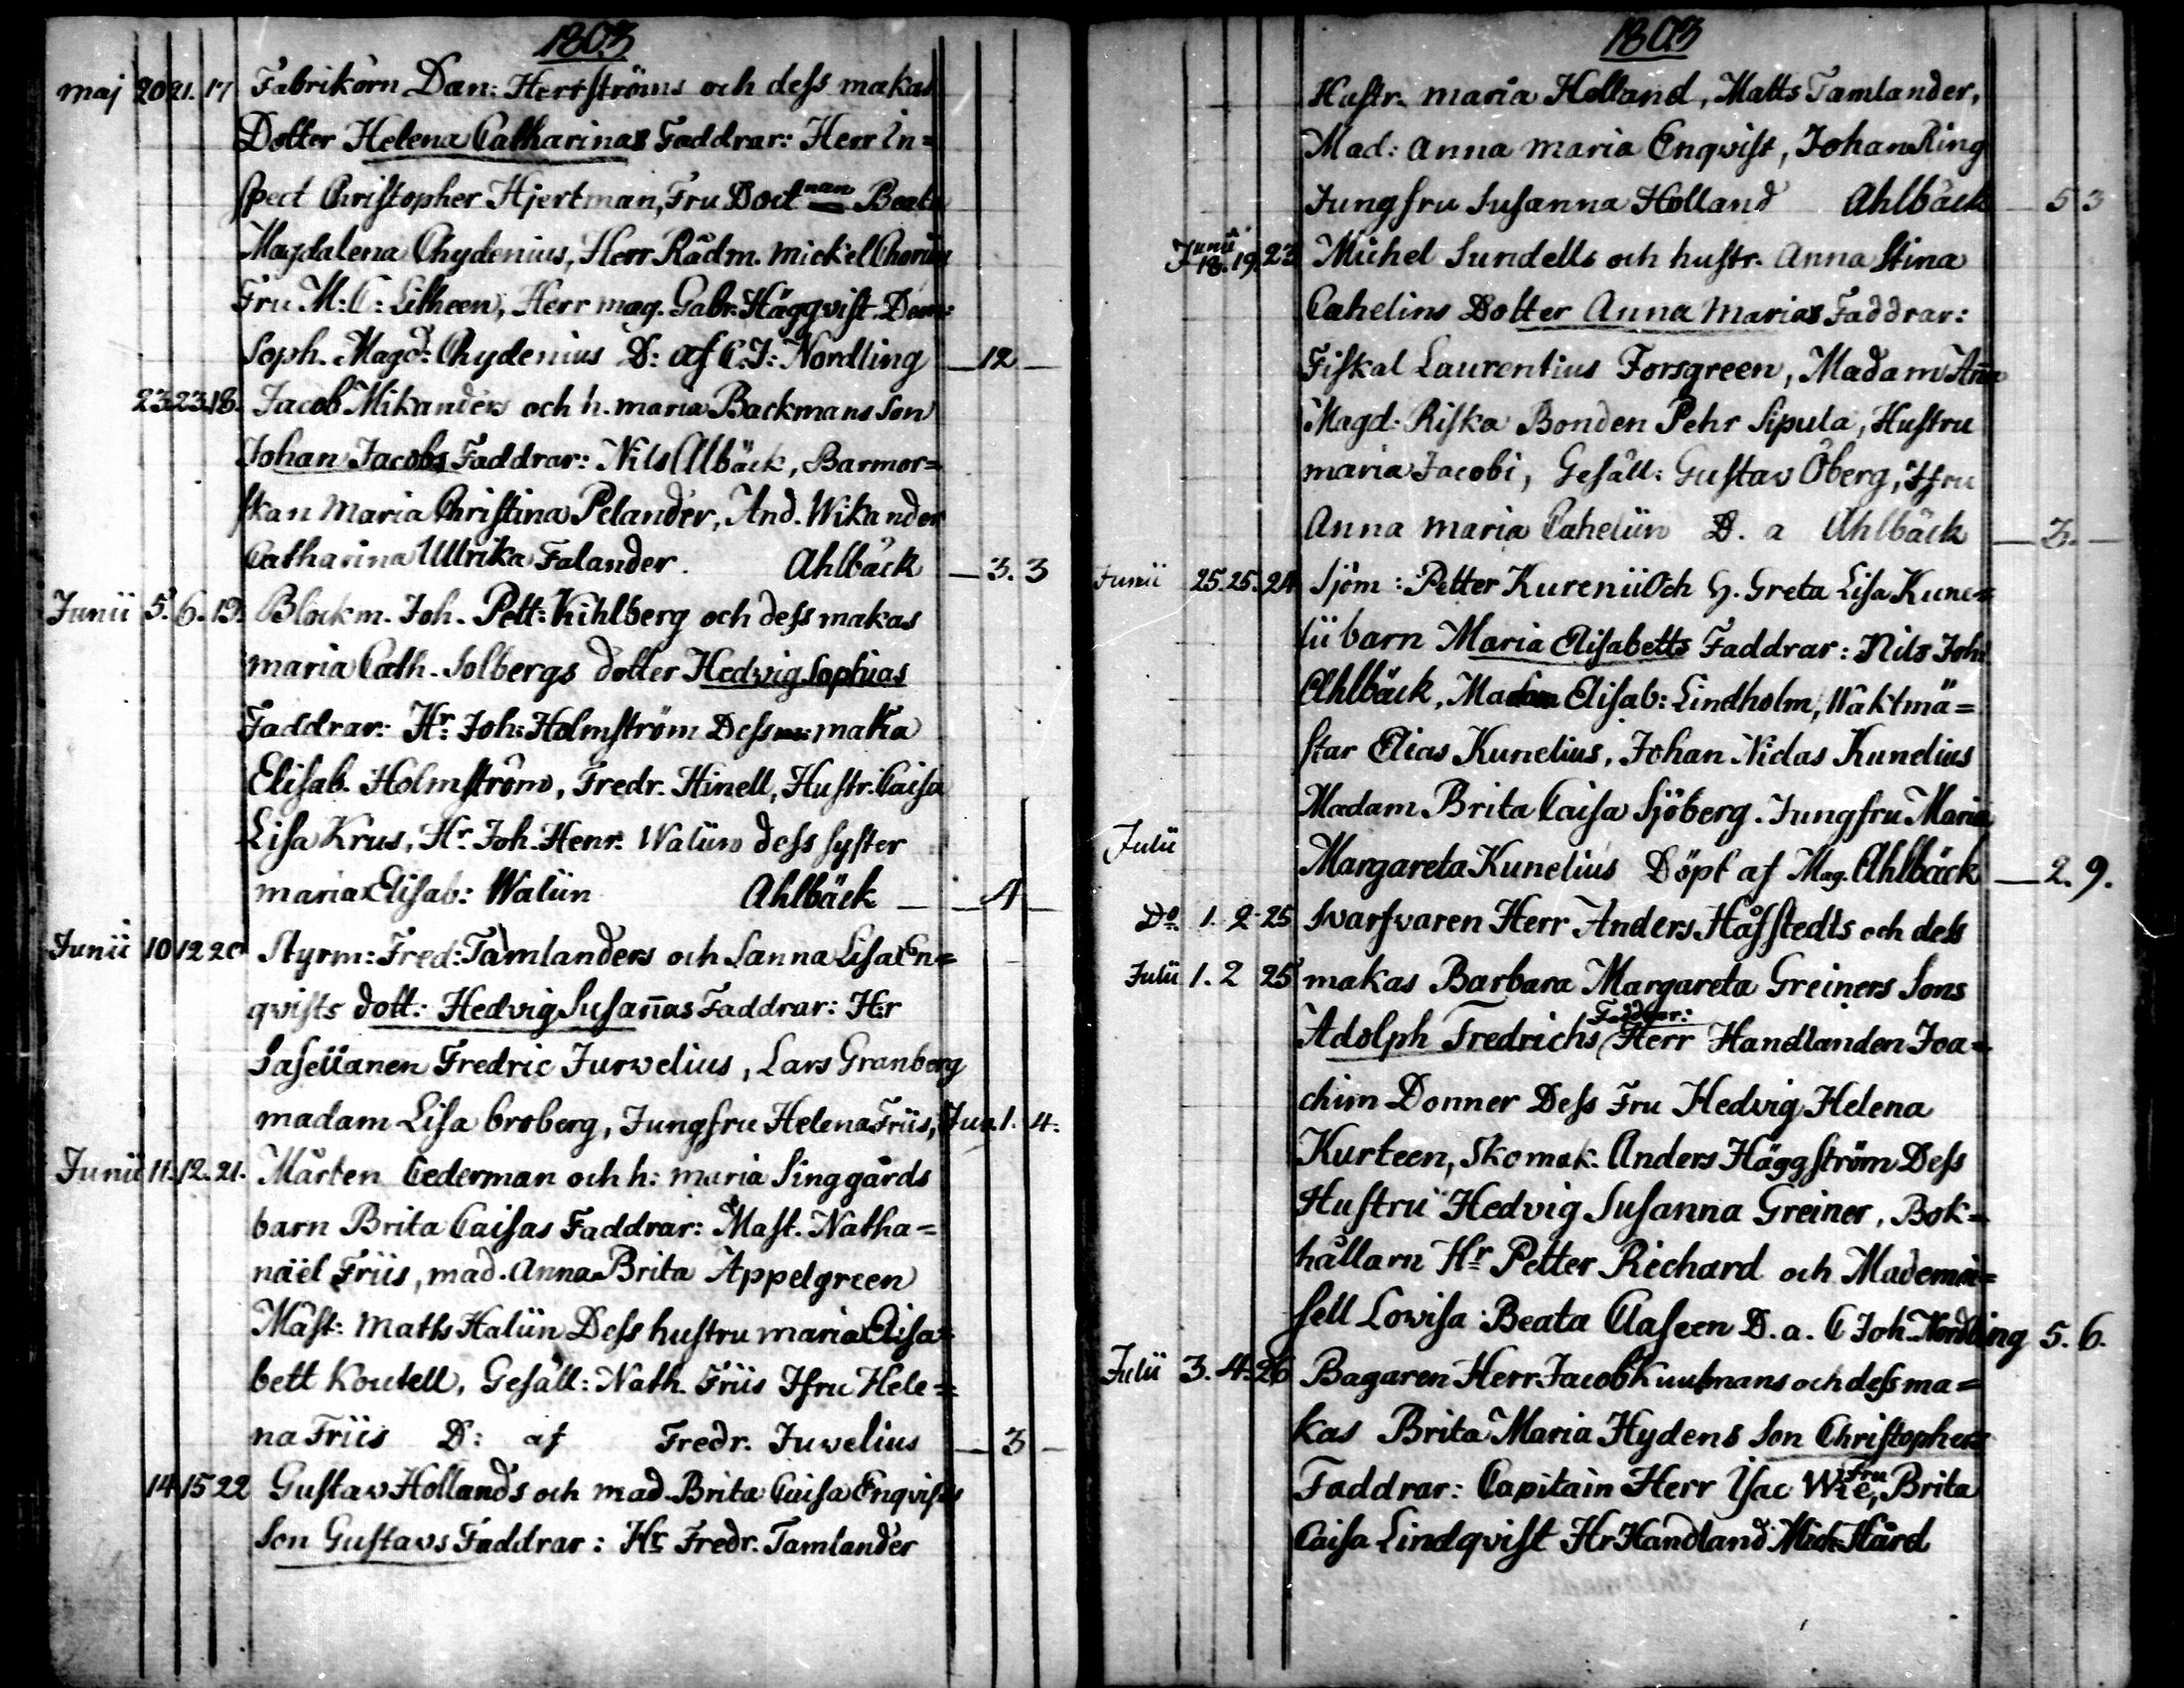 1803
maj 20 21. 17 Fabrikörn Dan: Hertströms och dess makas
Dotter Helena Catharinas Faddrar: Herr In=
spect Christopher Hjertman, Fru Doct nan Beata
Magdalena Chydenius, Herr Rådm. Mickel Chorin
Fru M: C: Litheen, Herr mag. Gabr. Häggqvist. Dem:
Soph. Magd: Chydenius D: af C. J: Nordling — 12 —
23. 23. 18. Jacob Mikanders och h. maria Backmans Son
Johan Jacobs Faddrar: Nils Allbäck, Barmor=
skan Maria Christina Pelander, And. Wikander
Catharina Ullrika Falander. Ahlbäck — 3. 3
Junii 5. 6. 19. Blockm. Joh. Pett: Kihlberg och dess makas
maria Cath. Solbergs dotter Hedvig Sophias
Faddrar: Hr Joh: Holmström Dess maka
Elisab. Holmström, Fredr. Hinell, Hustr. Caisa
Lisa Krus, Hr Joh. Henr. Waliin dess syster
maria Elisab: Waliin Ahlbäck — 4 —
Junii 10 12 20 Styrm: Fred: Tamlanders och Sanna Lisa En=
qvists dott: Hedvig Susañas Faddrar: H:r
Sasellanen Fredric Jurvelius, Lars Granberg
madam Lisa broberg, Jungfru Helena Friis, Juv. 1. 4.
Junii 11. 12. 21. Mårten Cederman och h: maria Singgårds
barn Brita Caisas Faddrar: Mäst. Natha=
näel Friis, mad. Anna Brita Appelgreen
Mäst: Maths Haliin Dess hustru maria Elisa=
bett Koutell, Gesäll: Nath. Friis Jfru Hele=
na Friis D: af Fredr. Juvelius — 3 —
14 15 22 Gustav Hollands och mad. Brita Caisa Enqvists
Son Gustavs Faddrar: Hr Fredr. Tamlander
1803
Hustr. maria Holland, Matts Tamlander,
Mad: Anna Maria Enqvist, Johan Ring
Jungfru Susanna Holland Ahlbäck 5 3
Junii 18. 19. 23 Michel Sundells och hustr. Anna Stina
Cahelins Dotter Anna Marias Faddrar:
Fiskal Laurentius Forsgreen, Madam Aña
Magd: Riska Bonden Pehr Sipula, Hustru
maria Jacobi, Gesäll: Gustav Öberg, Jfru
Anna maria Caheliin D. a Ahlbäck — 3. —
Junii 25. 25. 24 Sjöm: Petter Kurenii Och H. Greta Lisa Kune=
lii barn Maria Elisabetts Faddrar: Nils Joh:
Ahlbäck, Madam Elisab: Lindholm, Waktmä=
star Elias Kunelius, Johan Niclas Kunelius
Madam Brita Caisa Sjöberg. Jungfru Maria
Julii
Margareta Kunelius Döpt af Mag. Ahlbäck — 2. 9.
Do. 1. 2. 25 Svarfvaren Herr Anders Håfstedts och dess
Julii 1. 2 25 makas Barbara Margareta Greiners Sons
Adolph Fredrichs Faddrar: Herr Handlanden Joa=
chim Donner Dess Fru Hedvig Helena
Kurteen, Skomak. Anders Häggström Dess
Hustru Hedvig Susanna Greiner, Bok=
hållarn Hr Petter Richard och Mademoi=
sell Lovisa Beata Claseen D. a. C Joh. Nordling 5. 6.
Julii 3. 4. 26 Bagaren Herr Jacob Kuulmans och dess ma=
kas Brita Maria Hydens Son Christophers
Faddrar: Capitain Herr Isac Wie, Fru Brita
Caisa Lindqvist Hr Handland. Mich. Hård